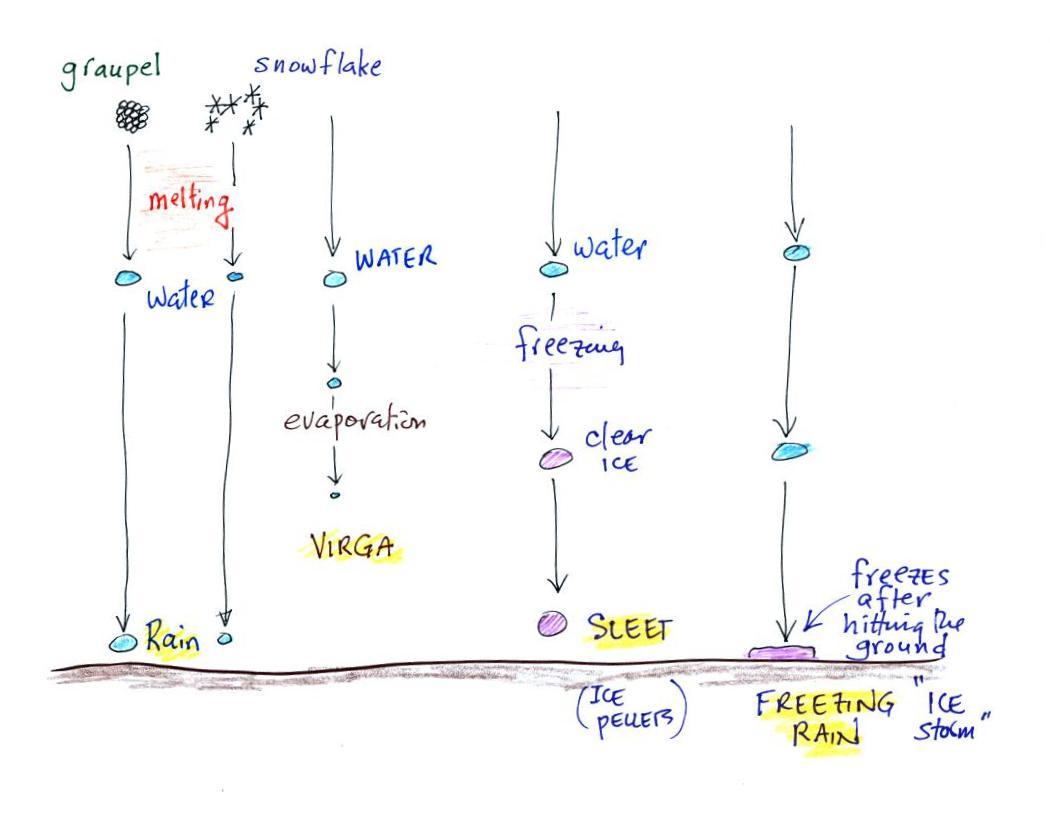 graupel
snowflake
melting
water
WATER
evaporation
VIRGA
Rain
water
freezing
clear
ICE
SLEET
(ICE
PELLETS)
freezes
after
hitting the
ground
FREEZING
RAIN
"ICE
storm"